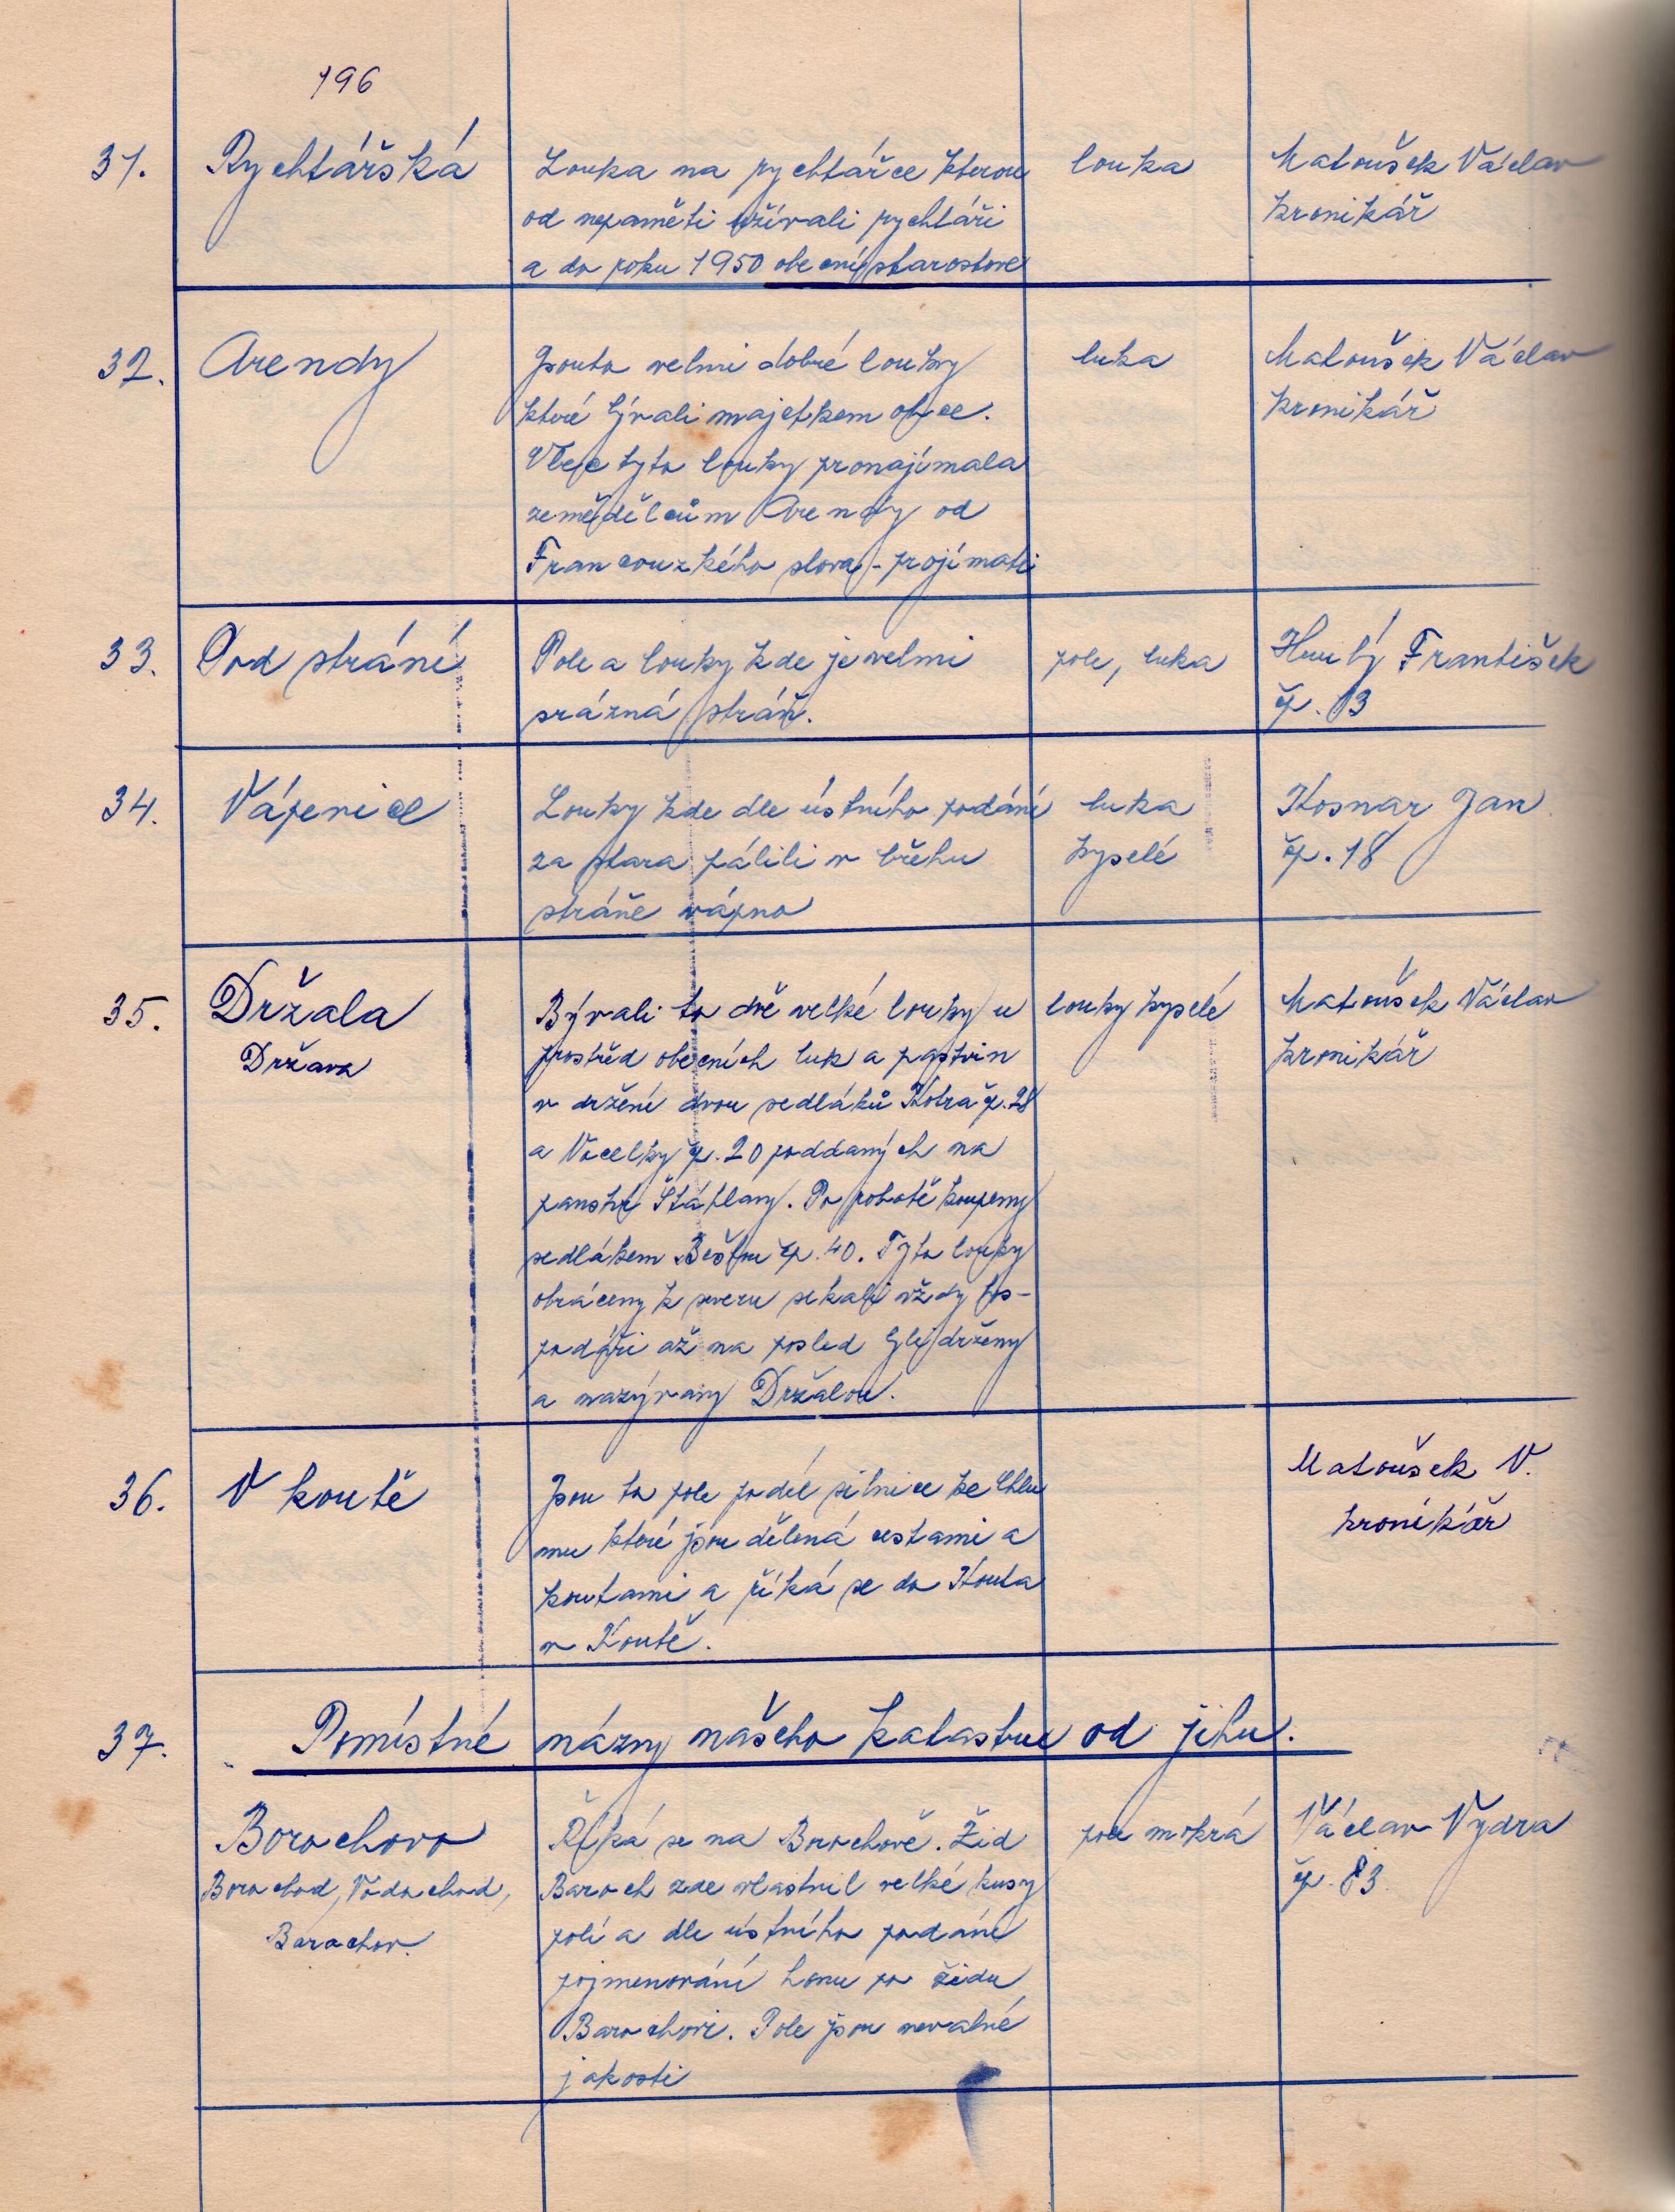 196
31.
Rychtářská
Louka na rychtářce kterou
od nepaměti užívali rychtáři
a do roku 1950 obecní starostove
louka
Matoušek Václav
kronikář
32.
Arendy
Jsouto velmi dobré louky
které bývali majetkem obce.
Obec tyto louky pronajímala
zemědělcům Arendy od
Francouzkého slova - projímati
luka
Matoušek Václav
kronikář
33.
Pod strání
Pole a louky kde je velmi
srázná stráň.
pole, luka
Hrubý František
čp. 13
34.
Vápenice
Louky kde dle ústního podání
za stara pálili v břehu
stráňe vápno
luka
kyselé
Kosnar Jan
čp. 18
35.
Držala
Država
Bývali to dvě velké louky u
prostřed obecních luk a pastvin
v držení dvou sedláků Kotra čp. 28
a Vocelky čp. 20 poddaných na
panství Štáhlavy. Po robotě koupeny
sedlákem čp. 40. Tyto louky
obráceny k severu sekali vždy hos-
podáři až na posled byli drženy
a nazývany Držalou.
louky kyselé
Matoušek Václav
kronikář
36.
V koutě
Jsou to pole podél silnice ke Chlu
mu které jsou dělená cestami a
koutami a říká se do Kouta
v Koutě.
Matoušek V.
kronikář
37.
Pomístné názvy našeho katastru od jihu.
Borochovo
Borochod, Vodochod,
Barochov.
Říká se na Borochově. Žid
Baroch zde vlastnil velké kusy
polí a dle ústního podání
pojmenování honu po židu
Barochovi. Pole jsou nevalné
jakosti
pole mokrá
Václav Vydra
čp. 83